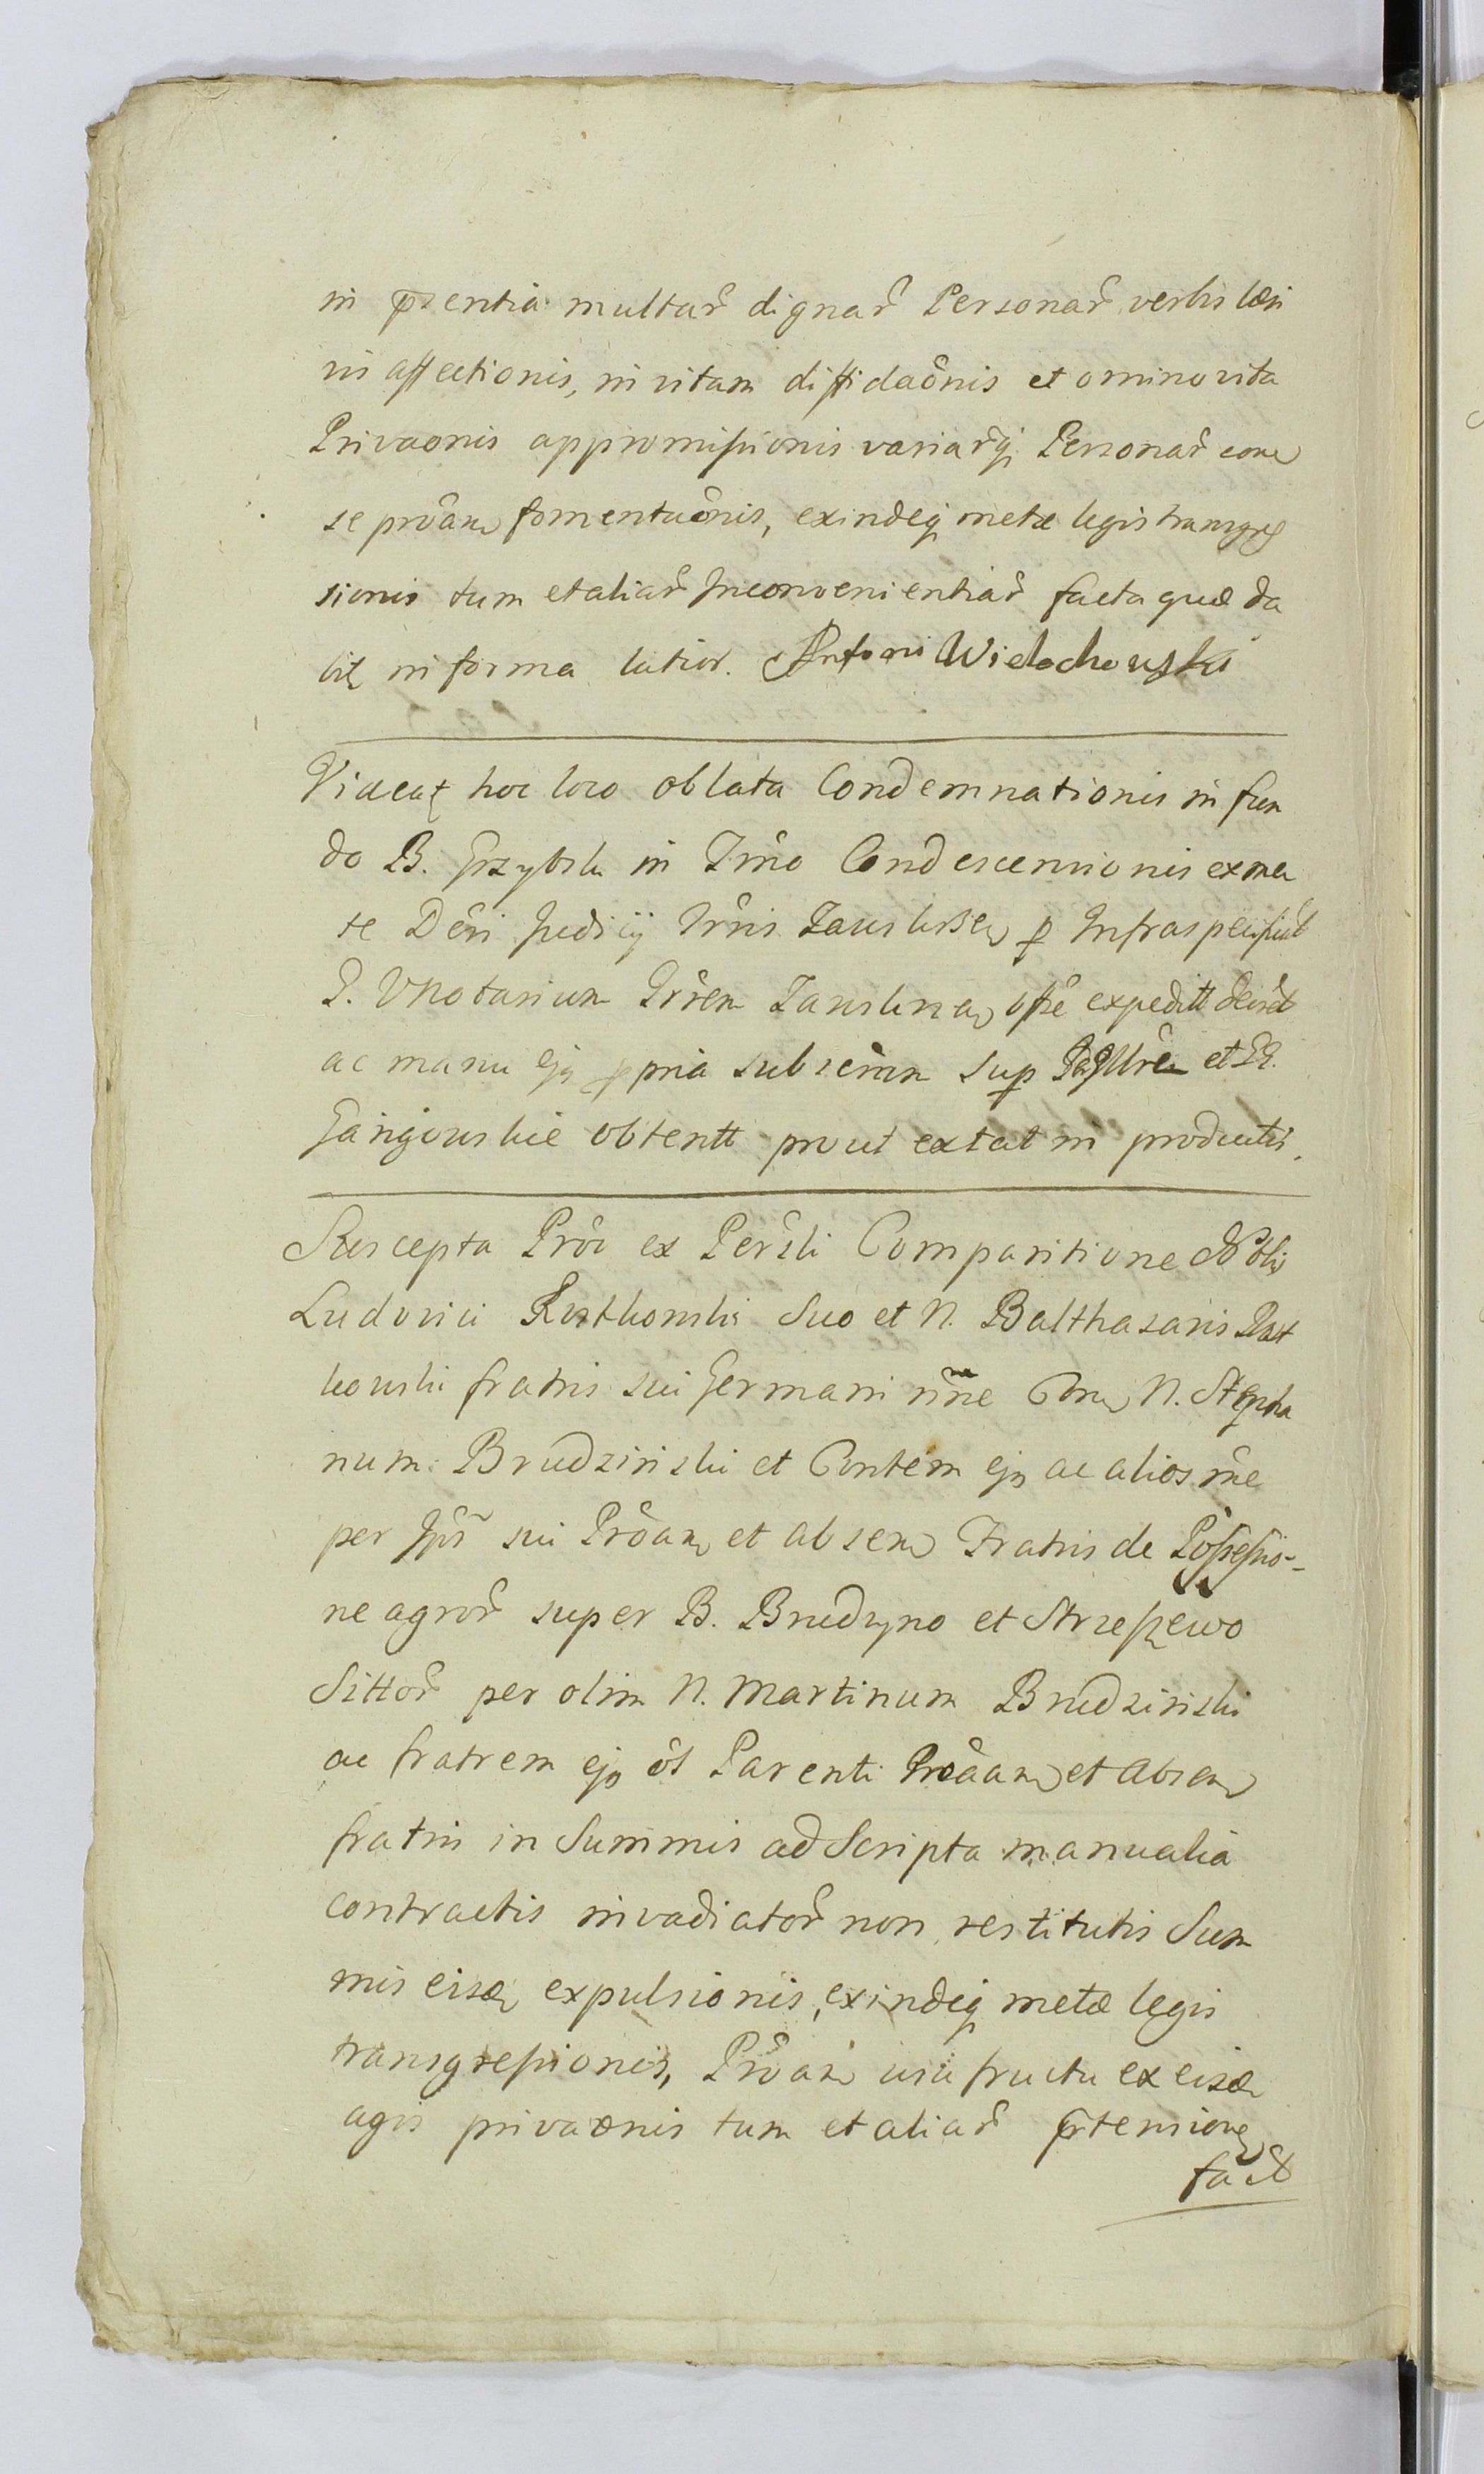 in pzentia multar̃ dignar̃ Personar̃ verbis læsi
vis affectionis, in vitam diffidaõnis et omnino vita
Privaonis appromissionis variarq̃; Personar̃ con
se proãm fomentaõnis, exindeq; metæ legis transgres
sionis tum et aliar̃ Inconvenientiar̃ facta quæ da
bit in forma latior. Antoni Wielochowski
Videat hoc loco oblata Condemnationis in fun
do B. Grzybsk in Tm̃o Condescensionis ex me
te Decri Judicij Trr̃is Zauskrzen p Infraspecificat
P. VNotarium Trr̃em Zauskrzen expeditt
ac manu ejq ppria subscriṁ sup et GG.
Gangowskie obtentt prout extat in productis.
Suscepta Prõt ex Persli Comparitione Nobilis
Ludovici Rostkowski suo et N. Balthasaris Rost
kowski fratris sui Germani nñe Con N. Stepha
num Brudzinski et Contem ejq ac alios m̃e
per Ipsr̃ sui Prõam et absen Fratris de Possessio-
ne agror̃ super B. Brudzyno et Strzeszewo
Sittor̃ per olim N. Martinum Brudzinski
ac fratrem ejq õl Parenti Proãam et absen
fratris in Summis ad Scripta manualia
contractis invadiator̃ non restitutis Sum
mis eisd expulsionis, exindeq; metæ legis
transgressionis, Prõam usu fructu ex eisd
agis privaonis tum et aliar̃ prtensione
fact